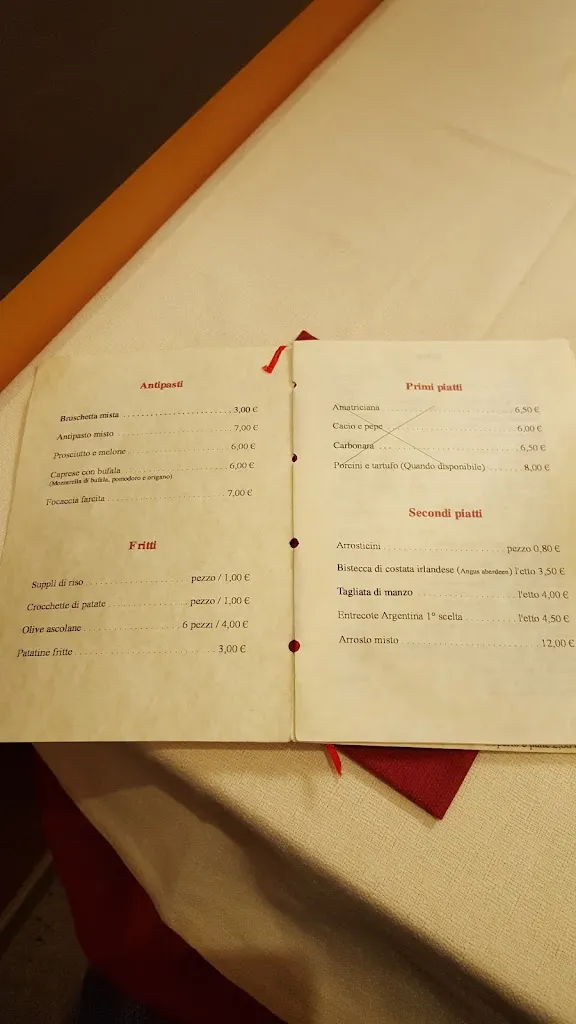 Antipasti
Bruschetta mista 3,00 €
Antipasto misto 7,00 €
Prosciutto e melone 6,00 €
Caprese con bufala 6,00 €
(Mozzarella di bufala, pomodoro e origano)
Focaccia farcita 7,00 €
Fritti
Supplì di riso pezzo / 1,00 €
Crocchette di patate pezzo / 1,00 €
Olive ascolane 6 pezzi / 4,00 €
Patatine fritte 3,00 €
Primi piatti
Amatriciana 6,50 €
Cacio e pepe 6,00 €
Carbonara 6,50 €
Porcini e tartufo (Quando disponibile) 8,00 €
Secondi piatti
Arrosticini pezzo 0,80 €
Bistecca di costata irlandese (Angus aberdeen) l'etto 3,50 €
Tagliata di manzo l'etto 4,00 €
Entrecote Argentina 1° scelta l'etto 4,50 €
Arrosto misto 12,00 €